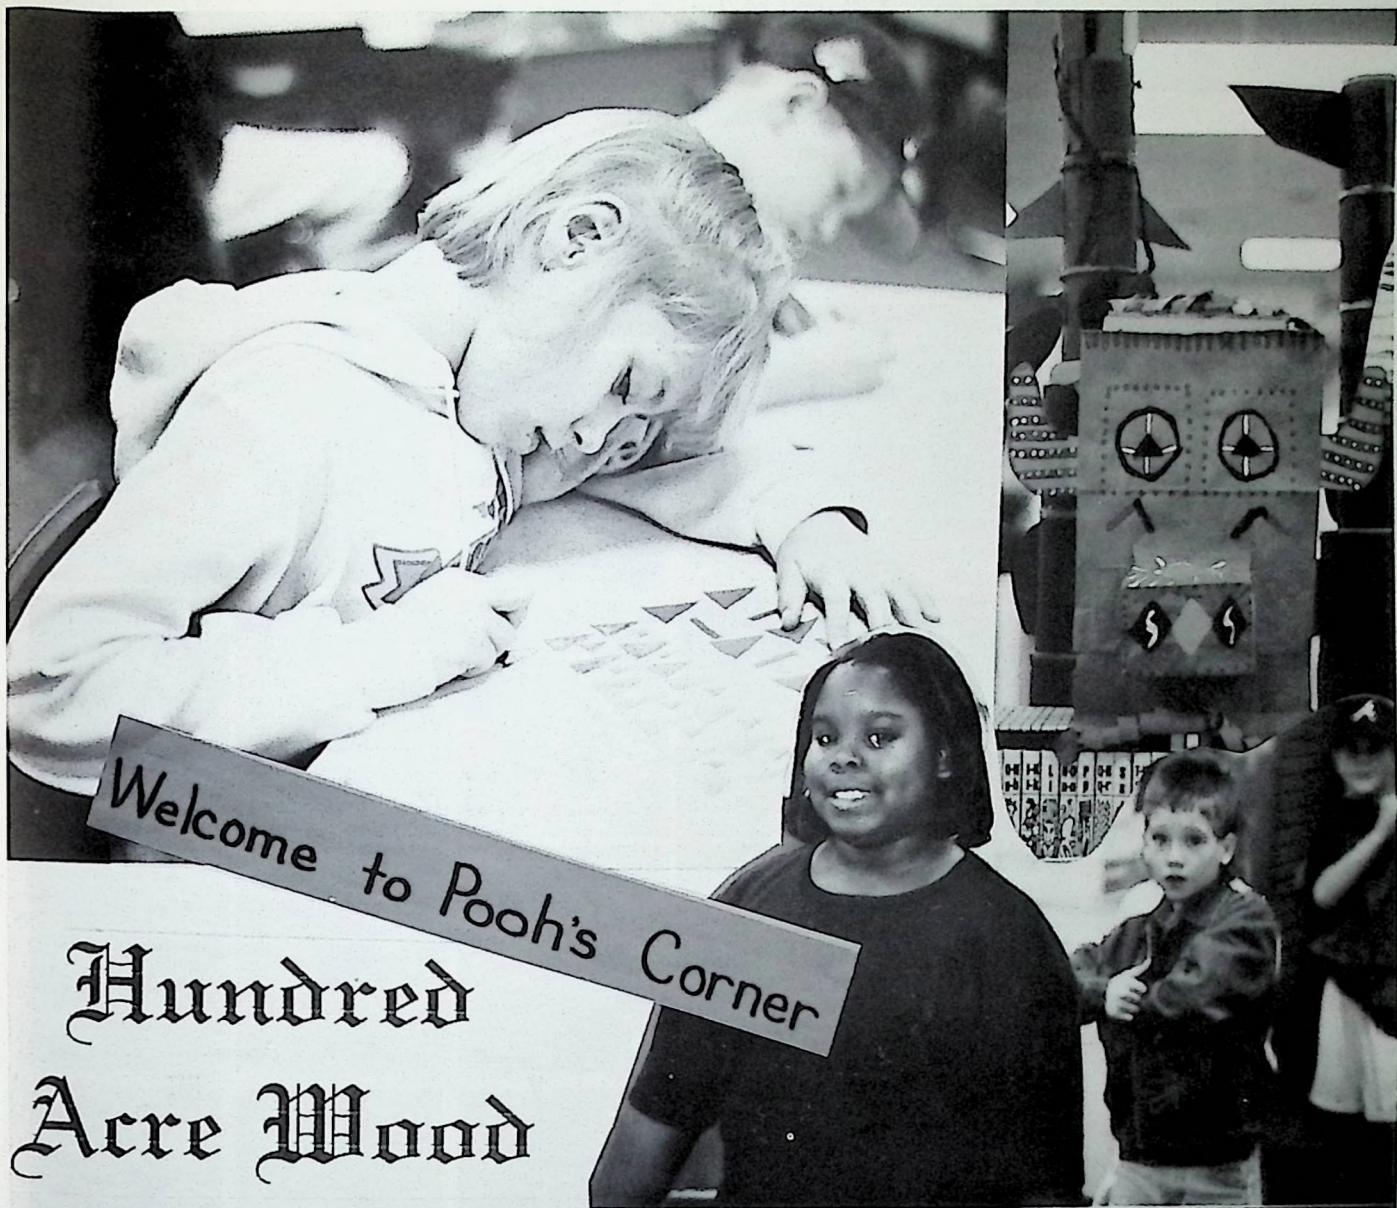 Welcome to Pooh's Corner
Hundred
Acre Wood